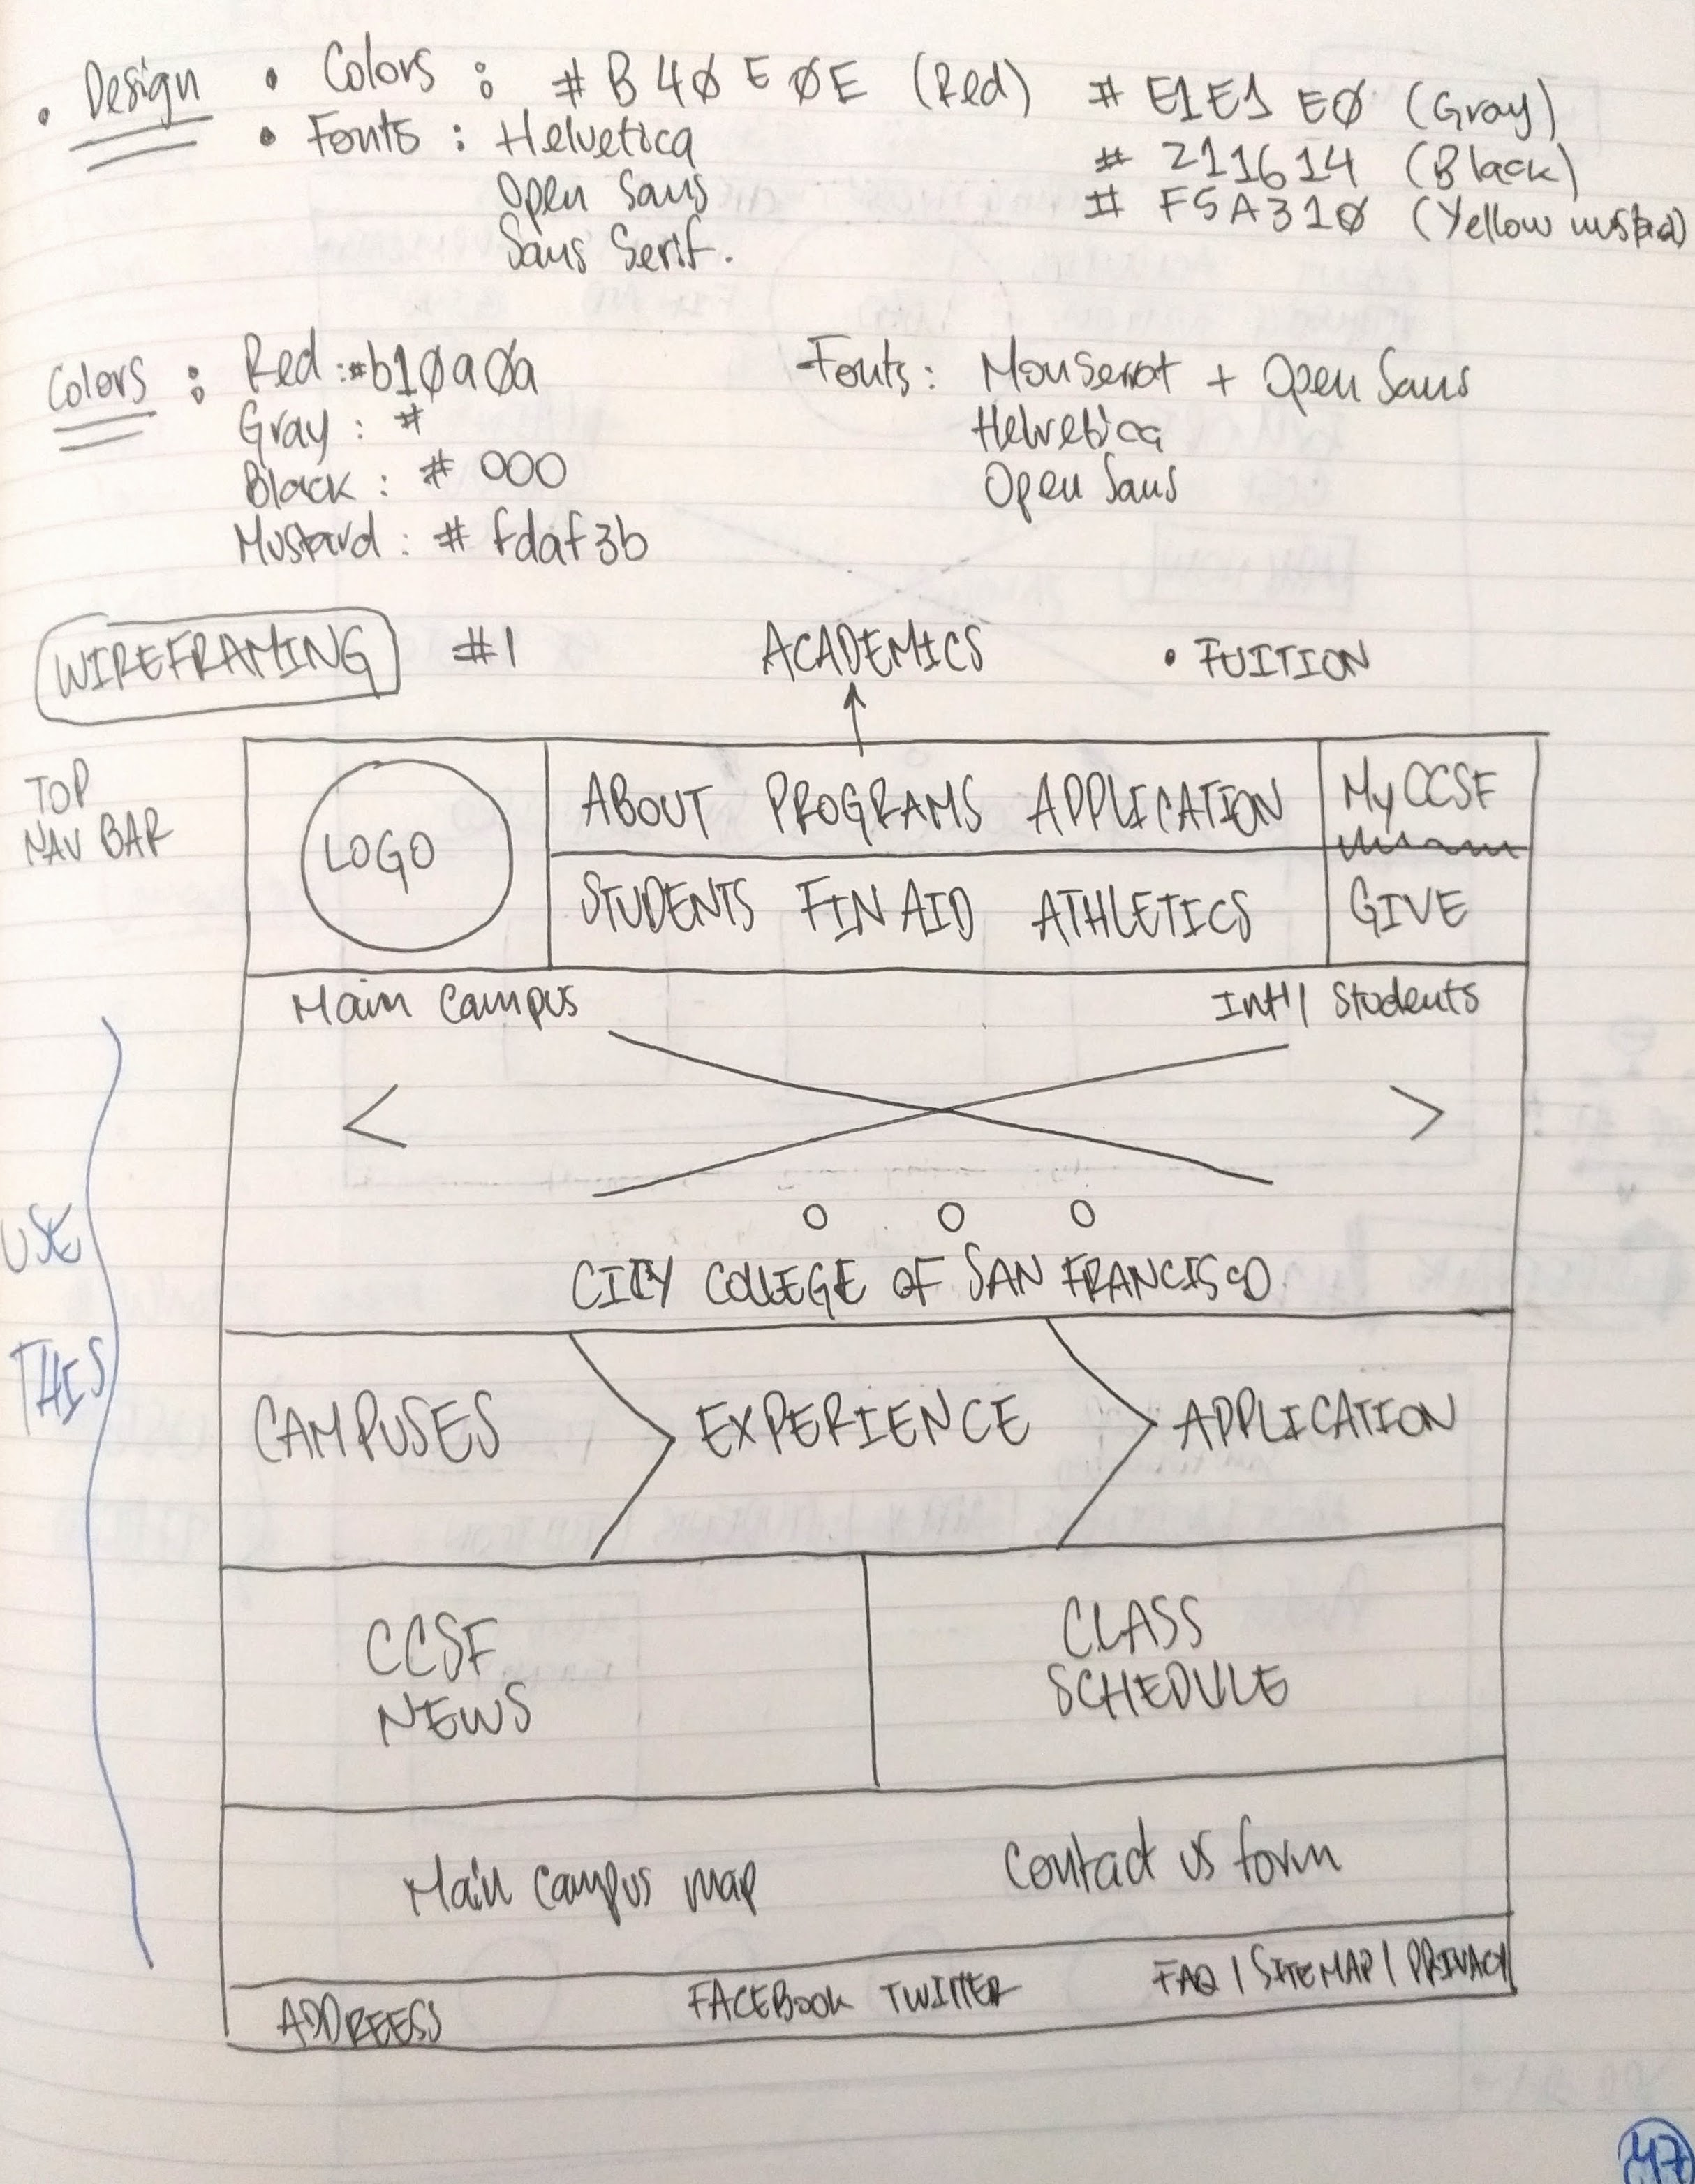 • Design • Colors : #B40E0E (Red) #E1E1E0 (Gray)
• Fonts : Helvetica # 211614 (Black)
Open Sans # F5A310 (Yellow mustard)
Sans Serif.
Colors : Red :#b10a0a Fonts: Monserrat + Open Sans
Gray : # Helvetica
Black : # 000 Open Sans
Mustard : # fdaf3b
WIREFRAMING #1 ACADEMICS • TUITION
TOP
NAV BAR
LOGO
ABOUT PROGRAMS APPLICATION MyCCSF
STUDENTS FIN AID ATHLETICS GIVE
Main Campus Int'l Students
< >
USE
THIS
CITY COLLEGE OF SAN FRANCISCO
CAMPUSES EXPERIENCE APPLICATION
CCSF
NEWS
CLASS
SCHEDULE
Main Campus map Contact us form
ADDREESS FACEBOOK TWITTER FAQ | SITEMAP | PRIVACY
47